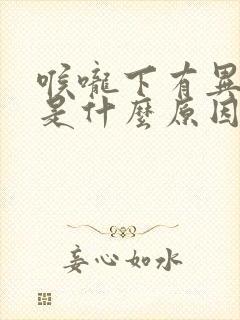 喉嚨下有異
是什麼原因
妄心如水